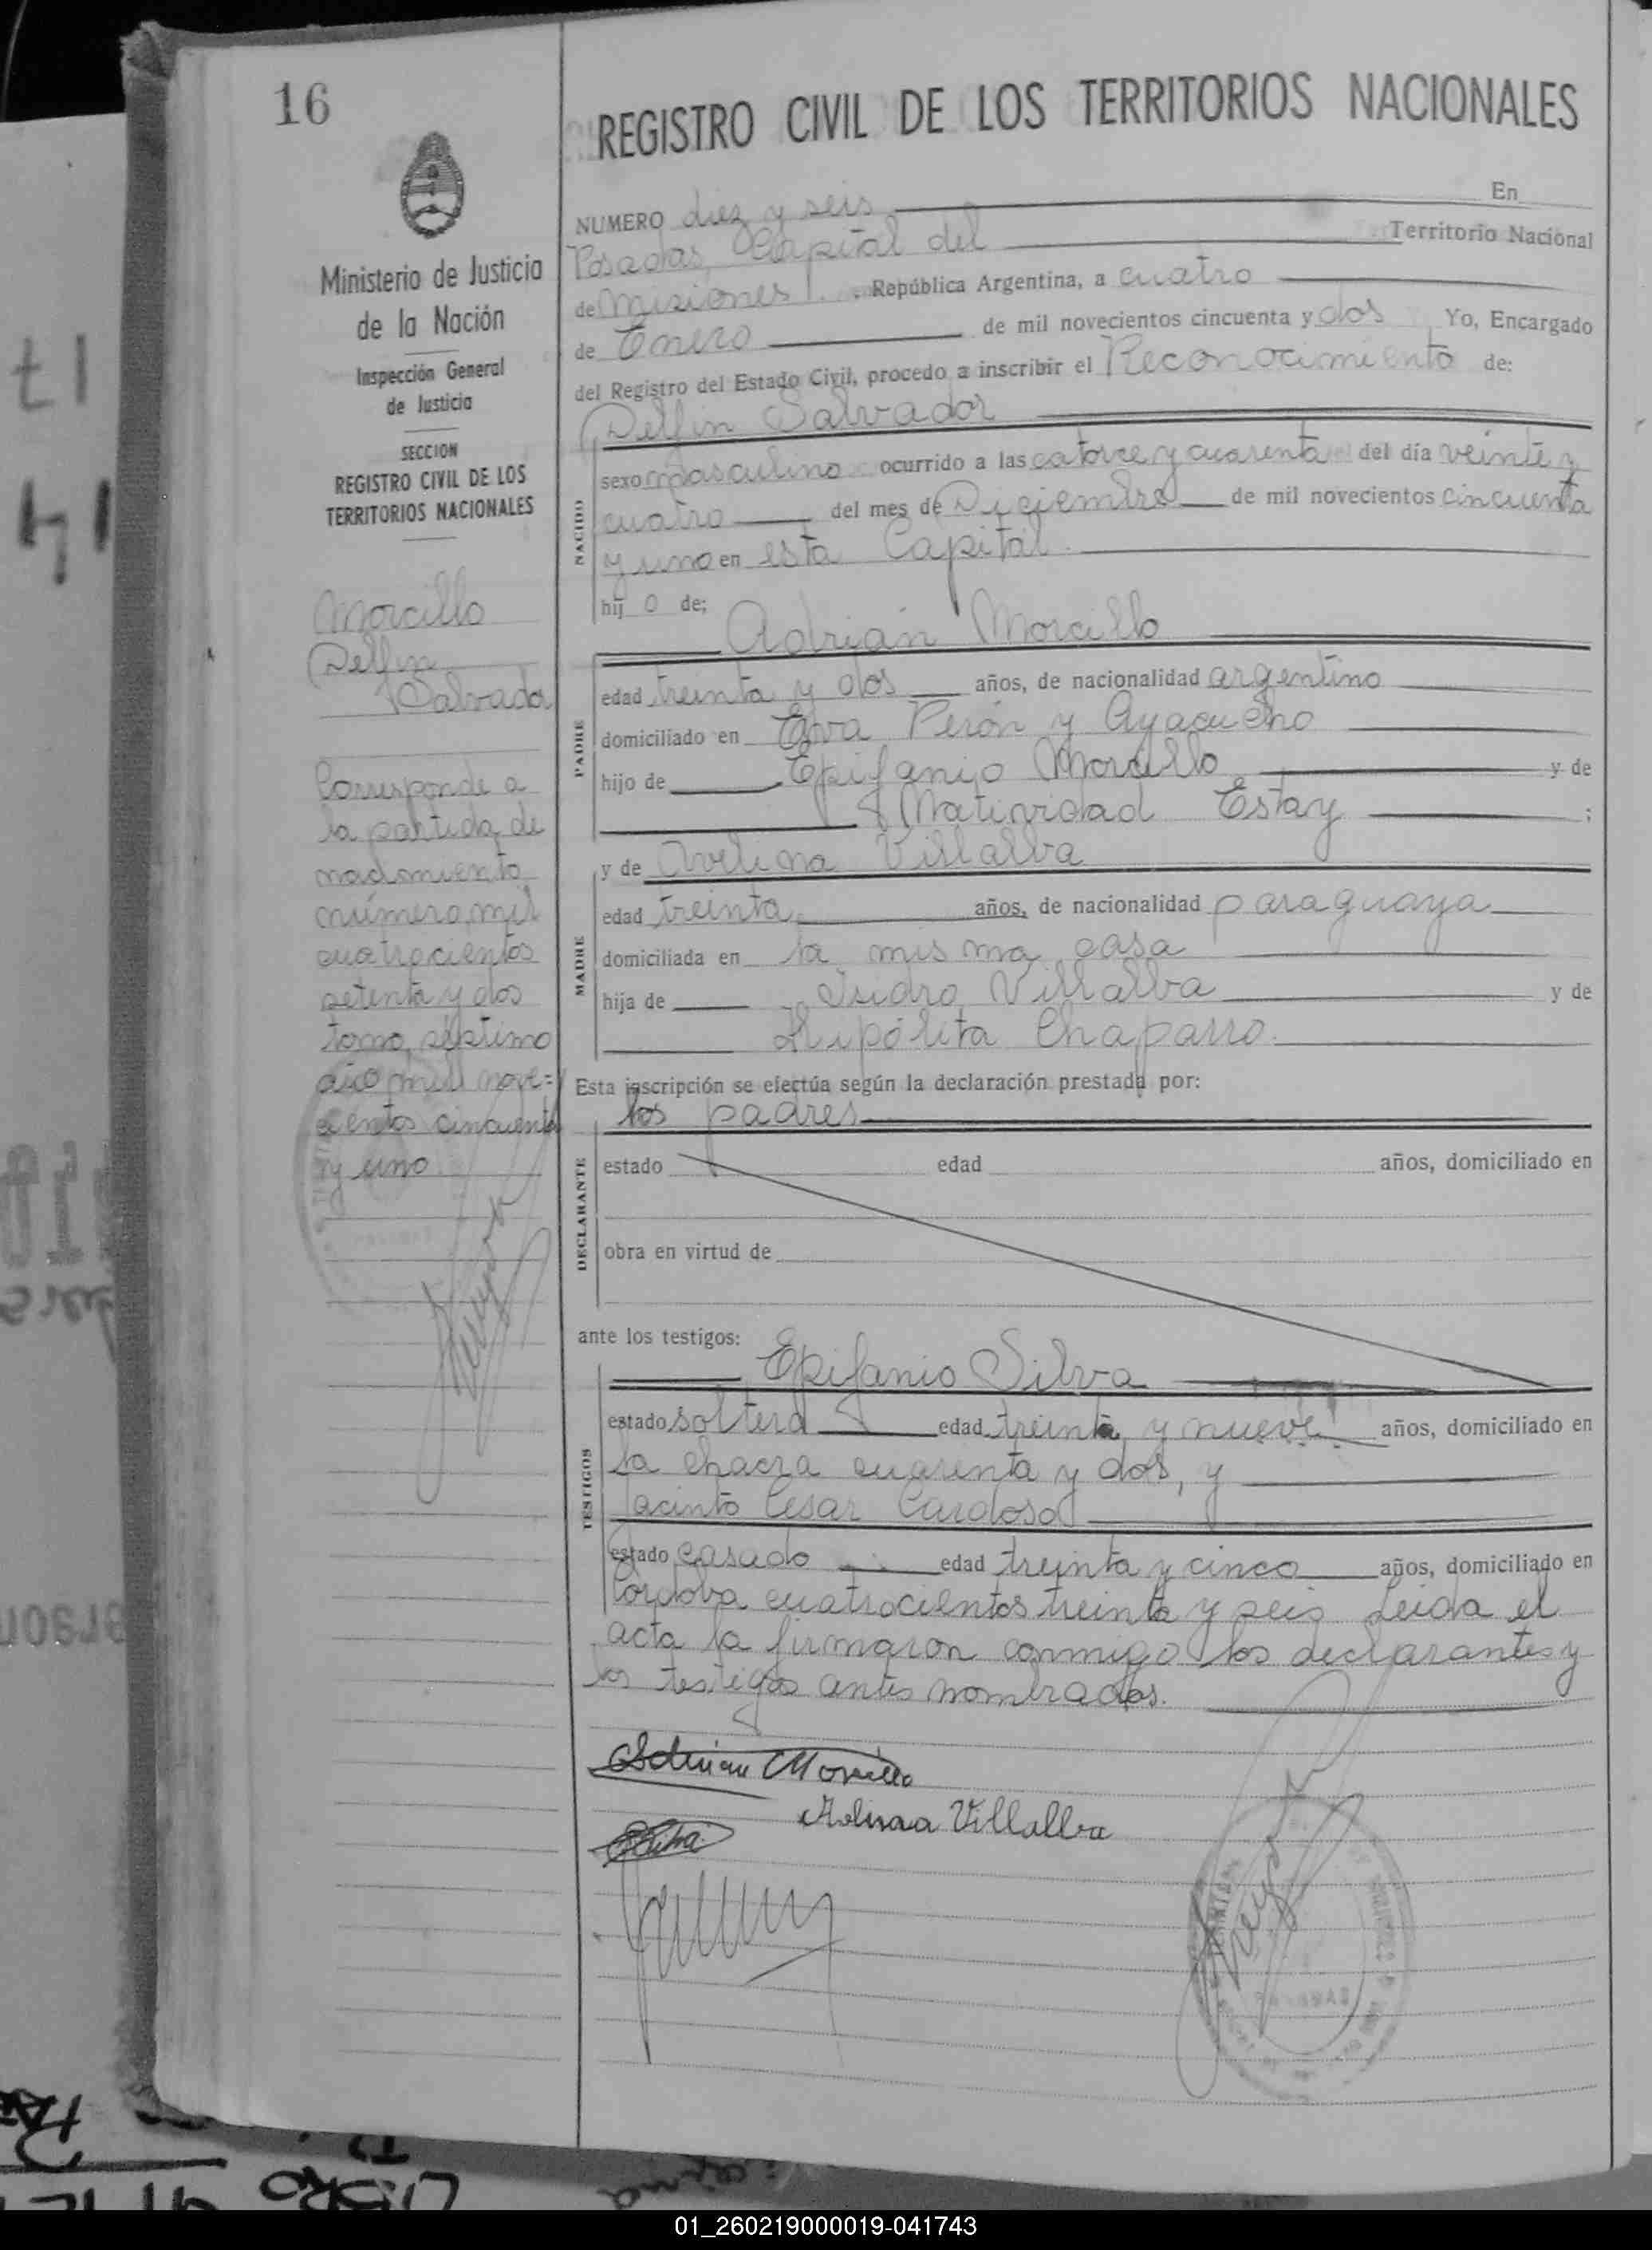 16
Ministerio de Justicia
de la Nación
Inspección General
de Justicia
SECCION
REGISTRO CIVIL DE LOS
TERRITORIOS NACIONALES
Morcillo
Delfin
Salvador
Corresponde a
la partida de
nacimiento
número mil
cuatrocientos
setenta y dos
tomo séptimo
año mil nove=
cientos cincuenta
y uno
REGISTRO CIVIL DE LOS TERRITORIOS NACIONALES
NUMERO diez y seis En
Posadas, Capital del Territorio Nacional
de Misiones, República Argentina, a cuatro
de Enero de mil novecientos cincuenta y dos Yo, Encargado
del Registro del Estado Civil, procedo a inscribir el Reconocimiento de:
Delfin Salvador
NACIDO
sexo masculino ocurrido a las catorce y cuarenta del día veinte y
cuatro del mes de Diciembre de mil novecientos cincuenta
y uno en esta Capital
hij o de;
Adrián Morcillo
PADRE
edad treinta y dos años, de nacionalidad argentino
domiciliado en Eva Perón y Ayacucho
hijo de Epifanio Morcillo y de
Natividad Estay ;
y de Avelina Villalba
MADRE
edad treinta años, de nacionalidad paraguaya
domiciliada en la misma casa
hija de Isidro Villalba y de
Hipólita Chaparro.
Esta inscripción se efectúa según la declaración prestada por:
los padres
DECLARANTE
estado edad años, domiciliado en
obra en virtud de
ante los testigos:
Epifanio Silva
TESTIGOS
estado soltero edad treinta y nueve años, domiciliado en
la chacra cuarenta y dos, y
Jacinto Cesar Cardoso
estado casado edad treinta y cinco años, domiciliado en
Córdoba cuatrocientos treinta y seis Leída el
acta la firmaron conmigo los declarantes y
los testigos antes nombrados.
Adrian Morcillo
Villalba
ESilva
01_260219000019-041743